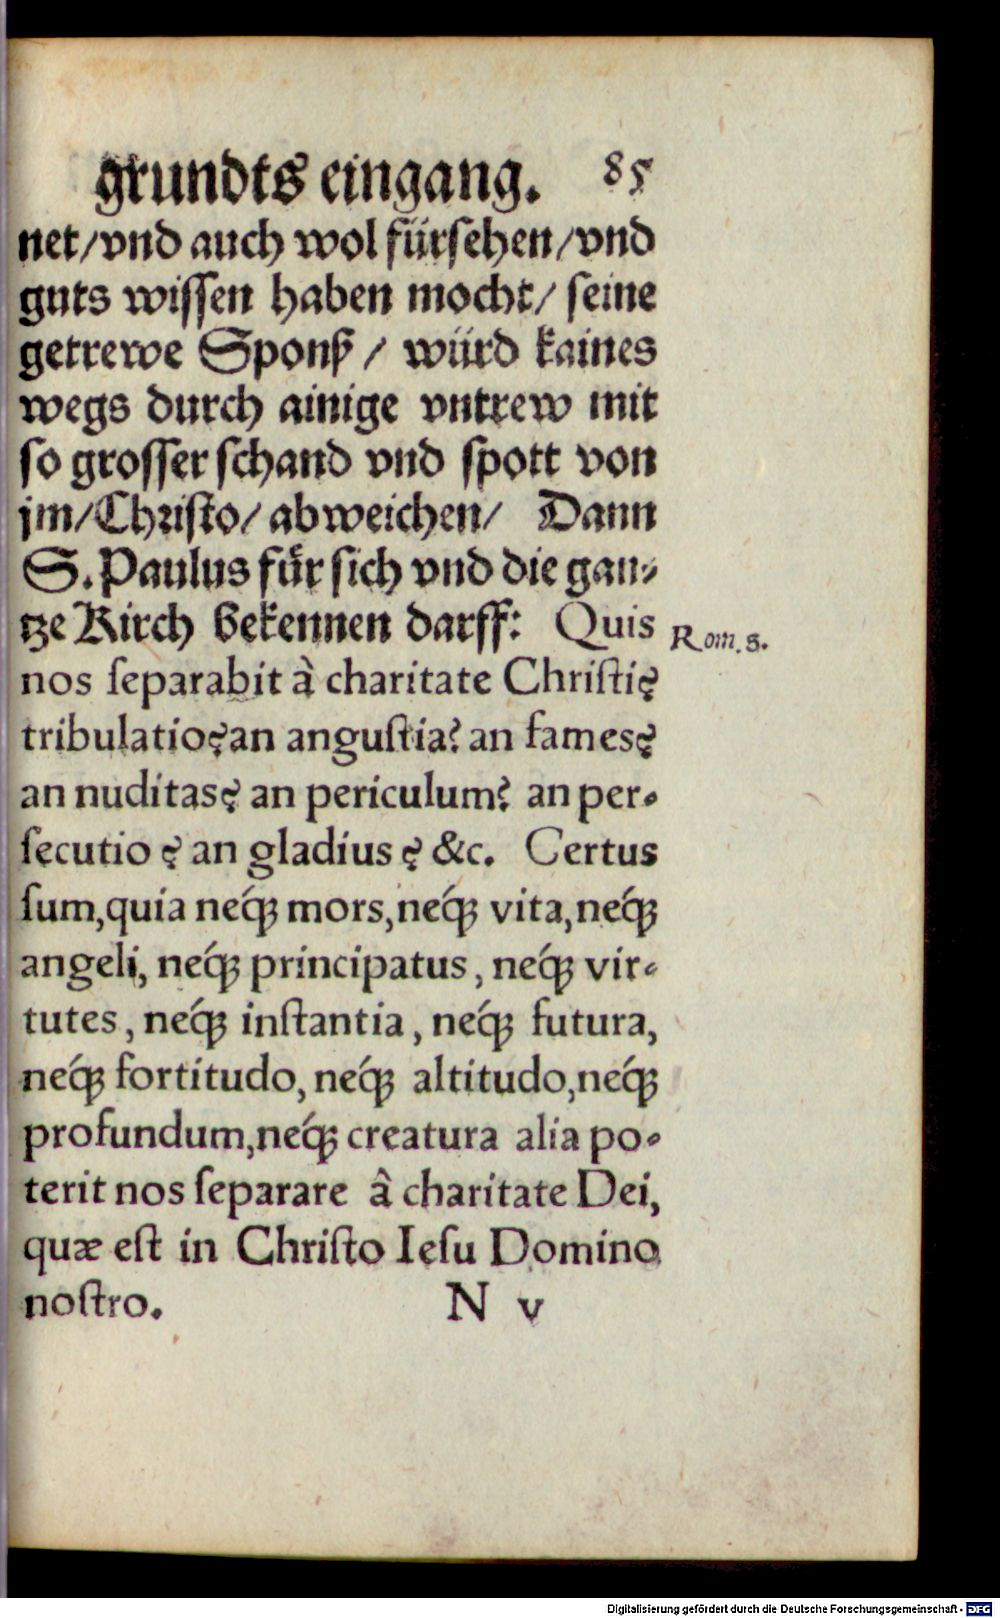 grundts eingang. 85
net/vnd auch wol fürsehen/vnd
guts wissen haben mocht/ seine
getrewe Sponß / würd kaines
wegs durch ainige vntrew mit
so grosser schand vnd spott von
jm/Christo/ abweichen/ Dann
S. Paulus für sich vnd die gan⸗
tze Kirch bekennen darff: Quis
Rom. 8.
nos ſeparabit à charitate Chriſti?
tribulatio? an anguſtia? an fames?
an nuditas? an periculum? an per-
ſecutio ? an gladius ? &c. Certus
ſum, quia neq́ꝫ mors, neq́ꝫ vita, neq́ꝫ
angeli, neq́ꝫ principatus, neq́ꝫ vir-
tutes, neq́ꝫ inſtantia, neq́ꝫ futura,
neq́ꝫ fortitudo, neq́ꝫ altitudo, neq́ꝫ
profundum, neq́ꝫ creatura alia po-
terit nos ſeparare â charitate Dei,
quæ eſt in Chriſto Ieſu Domino
noſtro. N v
Digitalisierung gefördert durch die Deutsche Forschungsgemeinschaft - DFG